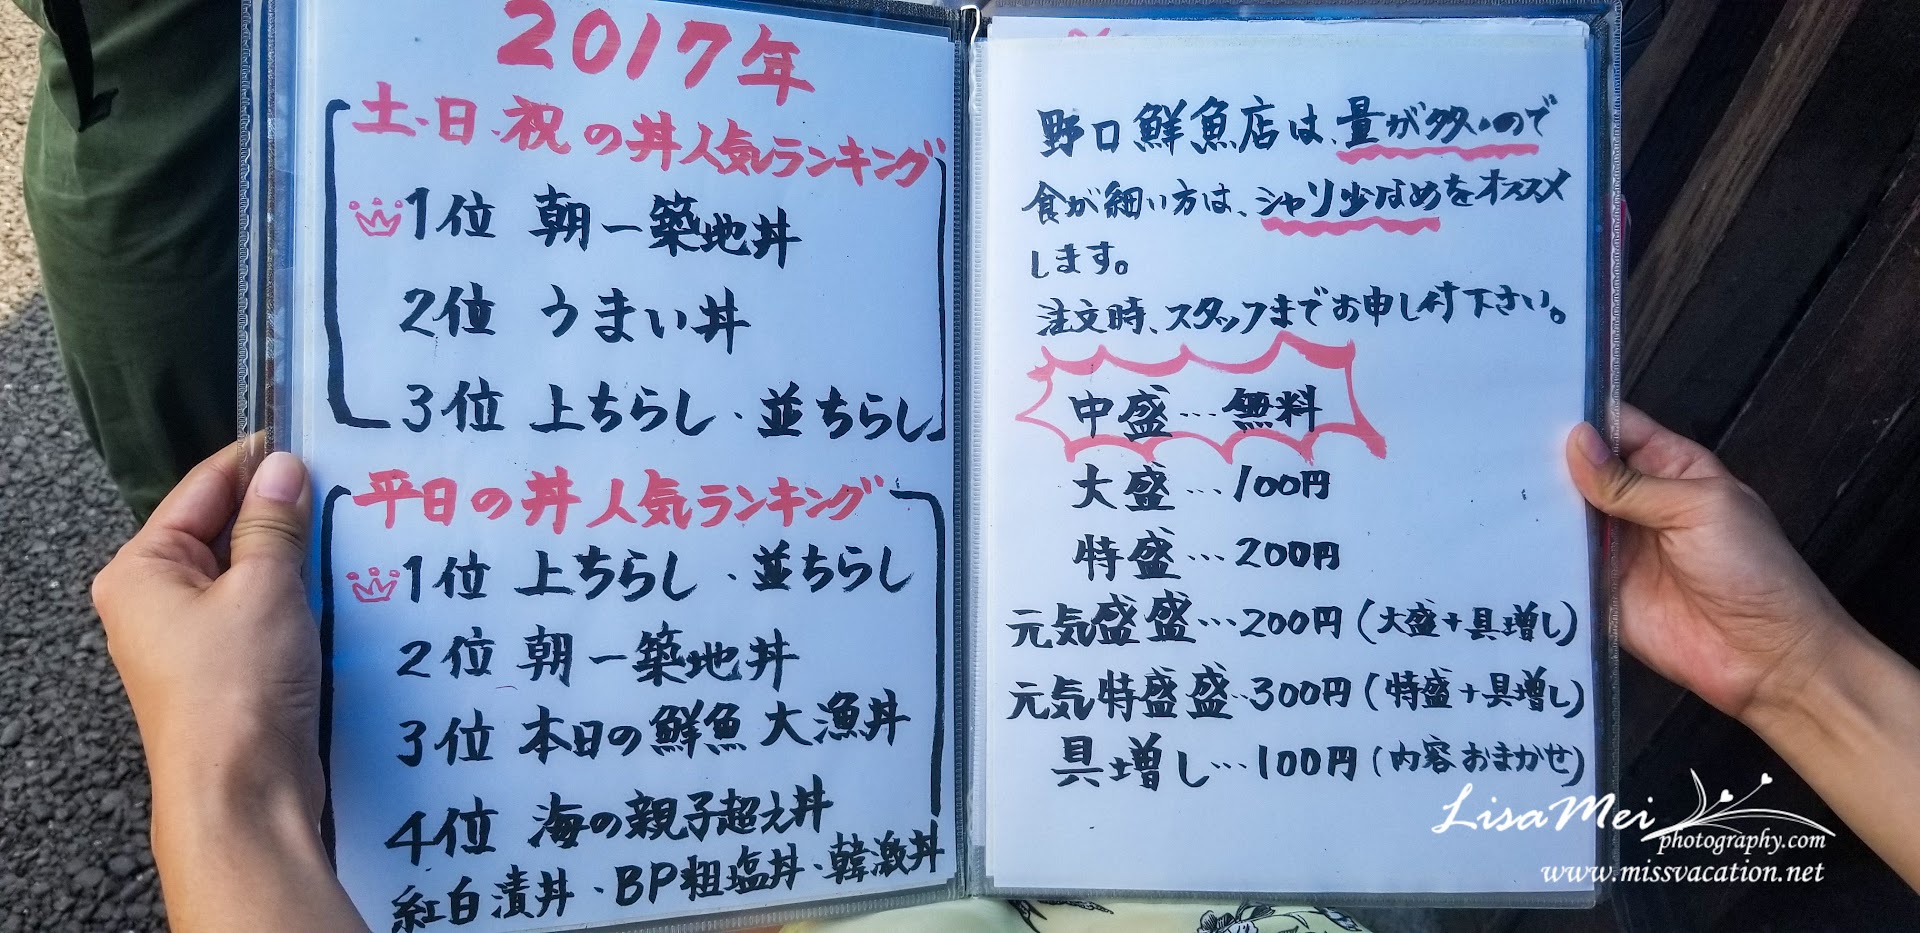 2017年
土、日、祝の丼人気ランキング
1位 朝一築地丼
2位 うまい丼
3位 上ちらし・並ちらし
平日の丼人気ランキング
1位 上ちらし・並ちらし
2位 朝一築地丼
3位 本日の鮮魚大漁丼
4位 海の親子超え丼
紅白漬丼・BP粗塩丼・韓激丼
野口鮮魚店は、量が多いので
食が細い方は、シャリ少なめをオススメ
します。
注文時、スタッフまでお申し付下さい。
中盛…無料
大盛…100円
特盛…200円
元気盛盛…200円(大盛+具増し)
元気特盛盛…300円(特盛+具増し)
具増し…100円(内容おまかせ)
LisaMei
photography.com
www.missvacation.net